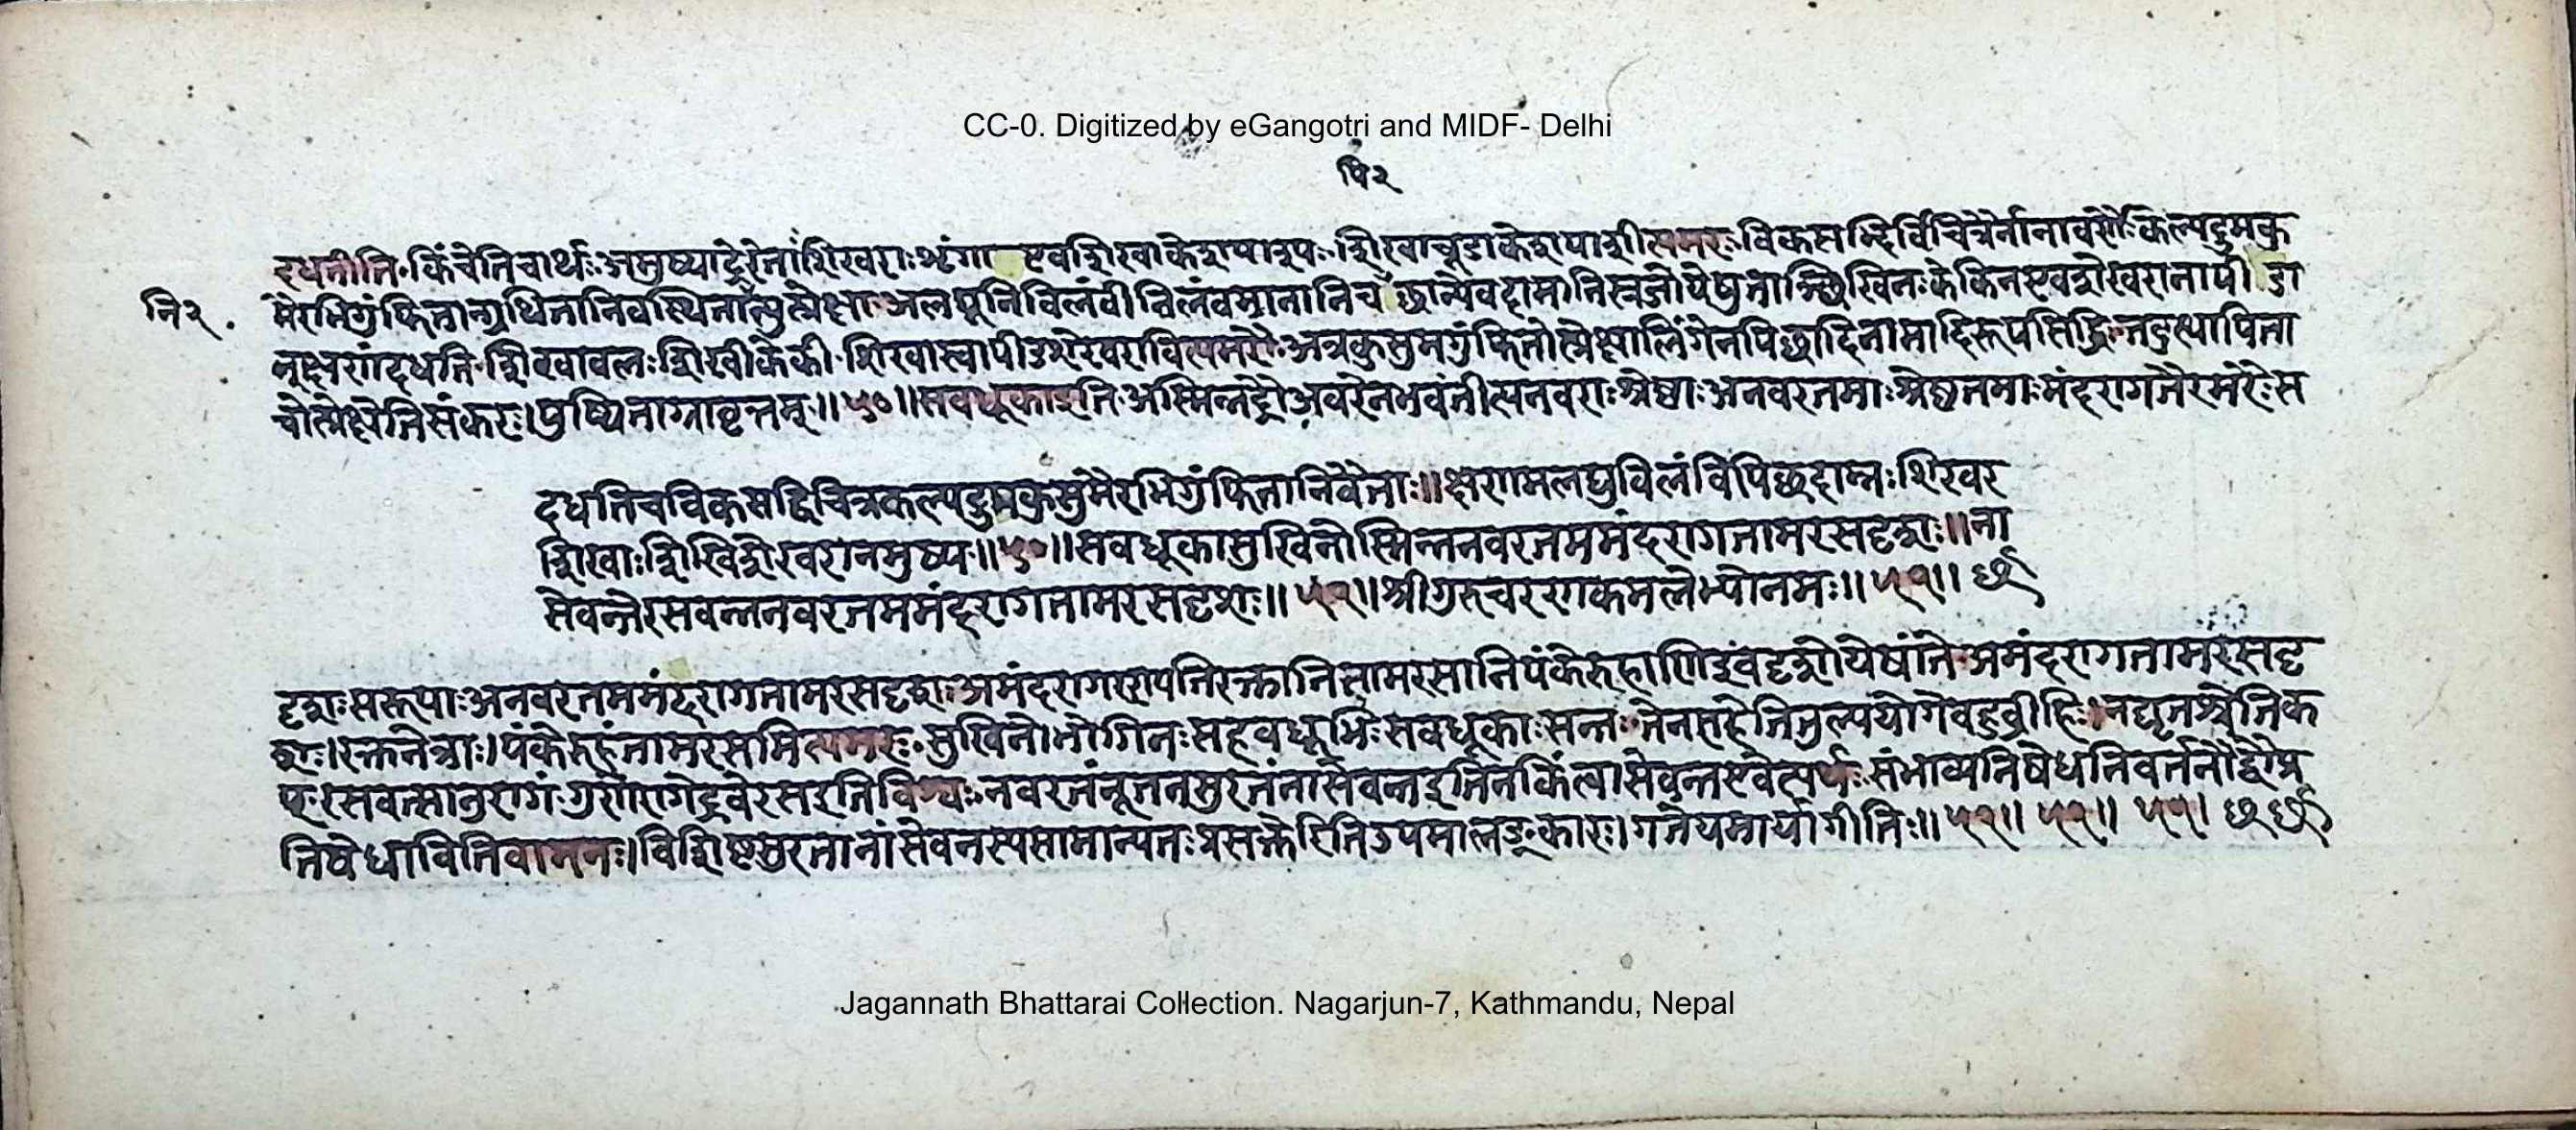 CC-0. Digitized by eGangotri and MIDF- Delhi
पि२
दधतीति किंचेतिचार्थः अमुष्याद्रेरेताः शिखराः शृंगा एवशिखाकेशपाशरूपः शिखाचूडाकेशपाशीत्यमरः विकसद्भिर्विचित्रैर्नानावर्णैः कल्पद्रुमकुसु
नि२
मैरभिगुंफितान्ग्रथितानिवस्थितानित्युत्प्रेक्षा अलघूनिविलंबीन्विलंबमानानिच
नूक्षणंदधति शिखावलः शिखीकेकी शिखास्वापीडशेखरावित्यमरः अत्रकुसुमगुंफितोत्प्रेक्षा
चोत्प्रेक्षेतिसंकरः। पुष्पिताग्रावृत्तम्॥५०॥सवधूकाइति अस्मिन्नद्रौ अवरेनभवंतीत्यनवराः श्रेष्ठाः अनवरतमाः श्रेष्ठतमाः मंदरागतैरमरैः स
दधतिचविकसद्विचित्रकल्पद्रुमकुसुमैरभिगुंफितानिवैताः॥क्षणमलघुविलंबिपिच्छदाम्नः शिखर
शिखाः शिखिशेखरानमुष्य॥५०॥सवधूकासुखिनोस्मिन्ननवरतममंदरागतामरसदृशः॥ना
सेवन्तेरसवन्ननवरतममंदरागतामरसदृशः॥५१॥श्रीगुरुचरणकमलेभ्योनमः॥५१॥
दृशः सरूपाः अनवरतममंदरागतामरसदृशः अमंदरागाण्यतिरक्तानितामरसानिपंकेरुहाणिइवदृशोयेषांते अमंदरागतामरसदृ
शः। रक्तनेत्राः। पंकेरुहंतामरसमित्यमरः सुखिनोभोगिनः सहवधूभिः सवधूकाः सन्तः तेनसहेतितुल्ययोगेबहुव्रीहिः। नद्यृतश्चेतिक
प् रसवत्सानुरागं गुणेरागेद्रवेरसइतिविश्वः नवरतंनूतनसुरतंनासेवन्तइतिनकिंत्वासेवन्तएवेत्यर्थः संभाव्यनिषेधनिवर्तनेद्वौप्र
तिषेधावितिवामनः। विशिष्टसुरतानांसेवनस्यसामान्यतः प्रसक्तेरिति उपमालङ्कारः। गतेयमार्यागीतिः॥५१॥ ५१॥ ५१।
Jagannath Bhattarai Collection. Nagarjun-7, Kathmandu, Nepal